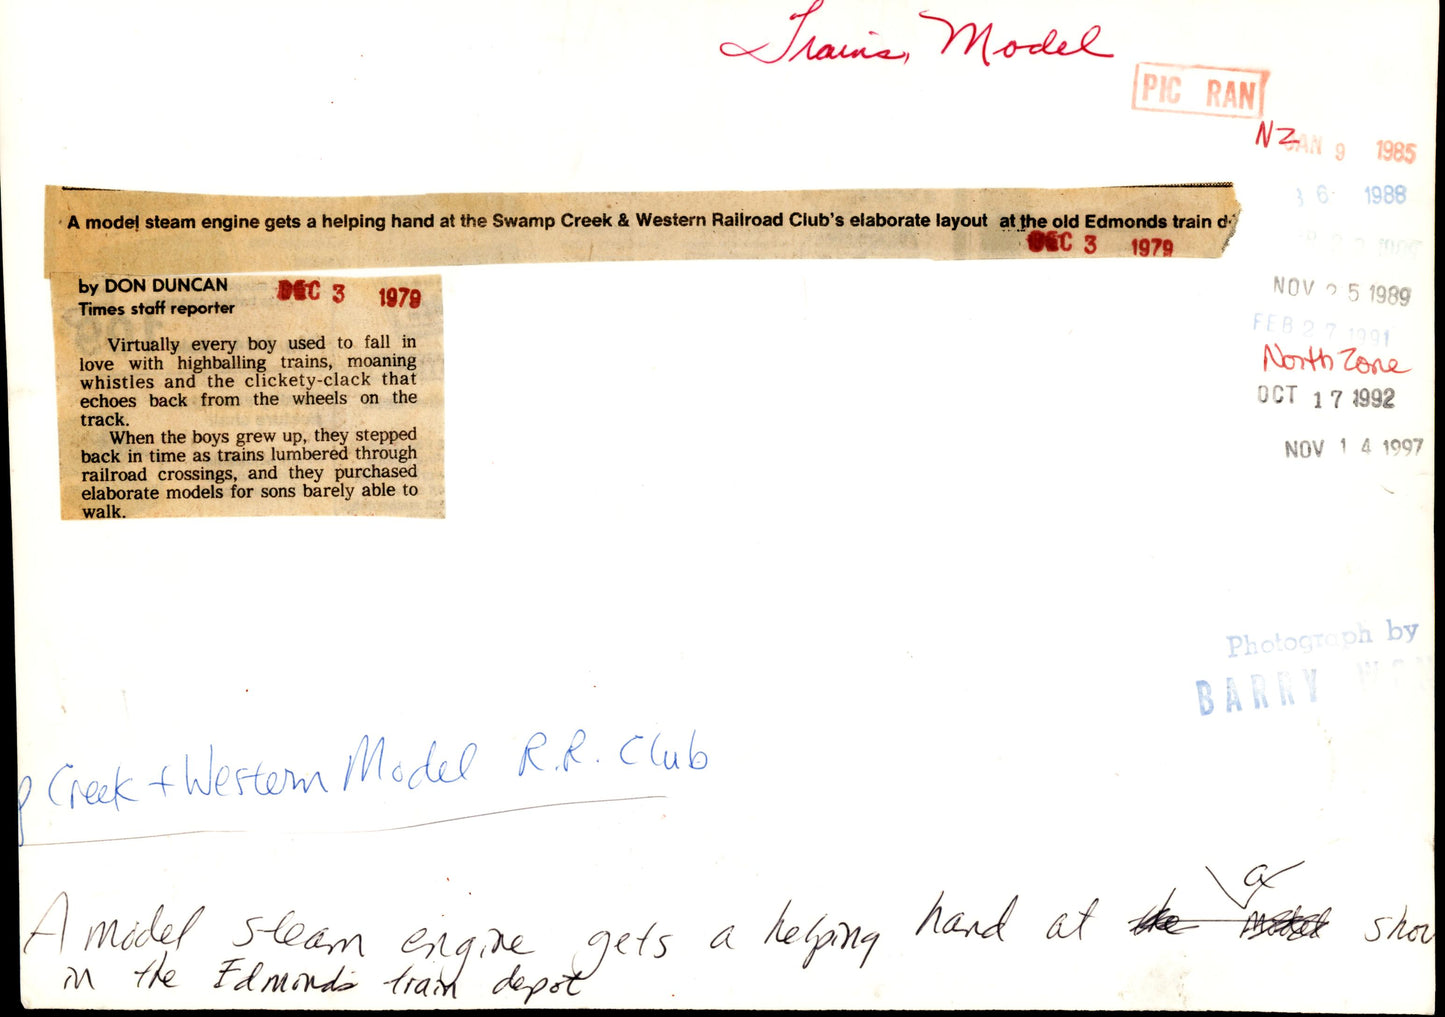 Trains, Model
PIC RAN
NZ
JAN 9 1985
6 1988
NOV 25 1989
FEB 27 1991
North Zone
OCT 17 1992
NOV 14 1997
A model steam engine gets a helping hand at the Swamp Creek & Western Railroad Club's elaborate layout at the old Edmonds train d
DEC 3 1979
by DON DUNCAN
Times staff reporter
DEC 3 1979
Virtually every boy used to fall in
love with highballing trains, moaning
whistles and the clickety-clack that
echoes back from the wheels on the
track.
When the boys grew up, they stepped
back in time as trains lumbered through
railroad crossings, and they purchased
elaborate models for sons barely able to
walk.
Photograph by
BARRY WON
p Creek + Western Model R.R. Club
A model steam engine gets a helping hand at the a model show
in the Edmonds train depot